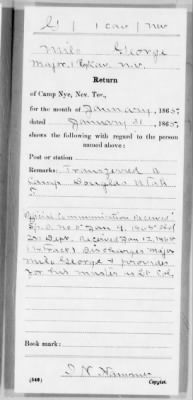 G | 1 Cav | Nev
Milo George
Major, 1 Cav. N.V.
Return
of Camp Nye, Nev. Ter.,
for the month of January, 1865,
dated January 31, 1865,
shows the following with regard to the person
named above:
Post or station
Remarks: Transferred @
Camp Douglas Utah
Official Communication Received
S.O. No. 5 Jan 7, 1865
Dept. Received Jan 12, 1865
(Extract) Discharges Major
Milo George & provides
for his muster as Lt Col.
Book mark:
(546) Copyist.